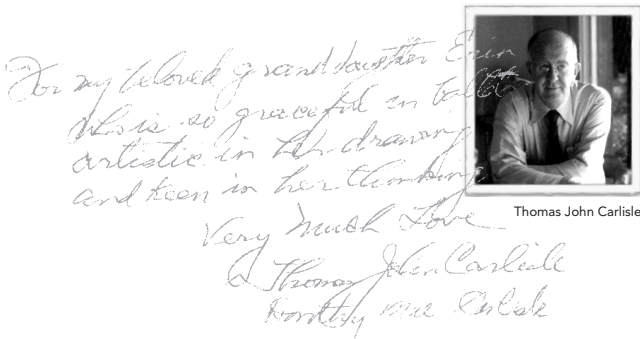 For my beloved granddaughter Erin
who is so graceful in ballet
artistic in her drawing
and keen in her thinking
Very Much Love
Thomas John Carlisle
Dorothy Mae Carlisle
Thomas John Carlisle